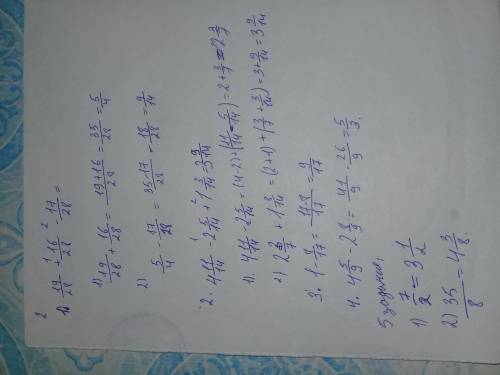 2
1) 19/28 + 16/28 - 17/28 =
1) 19/28 + 16/28 = 19+16/28 = 35/28 = 5/4
2) 5/4 - 17/28 = 35-17/28 = 18/28 = 9/14
2. 4 11/14 - 2 5/14 + 1 3/14 = 3 9/14
1). 4 11/14 - 2 5/14 = (4-2)+(11/14 - 5/14) = 2 + 3/7 = 2 3/7
2) 2 3/7 + 1 3/14 = (2+1)+(3/7 + 3/14) = 3 + 9/14 = 3 9/14
3. 1 - 8/17 = 17-8/17 = 9/17
4. 4 5/9 - 2 8/9 = 41/9 - 26/9 = 5/3.
5 задание,
1) 7/2 = 3 1/2
2) 35/8 = 4 3/8.